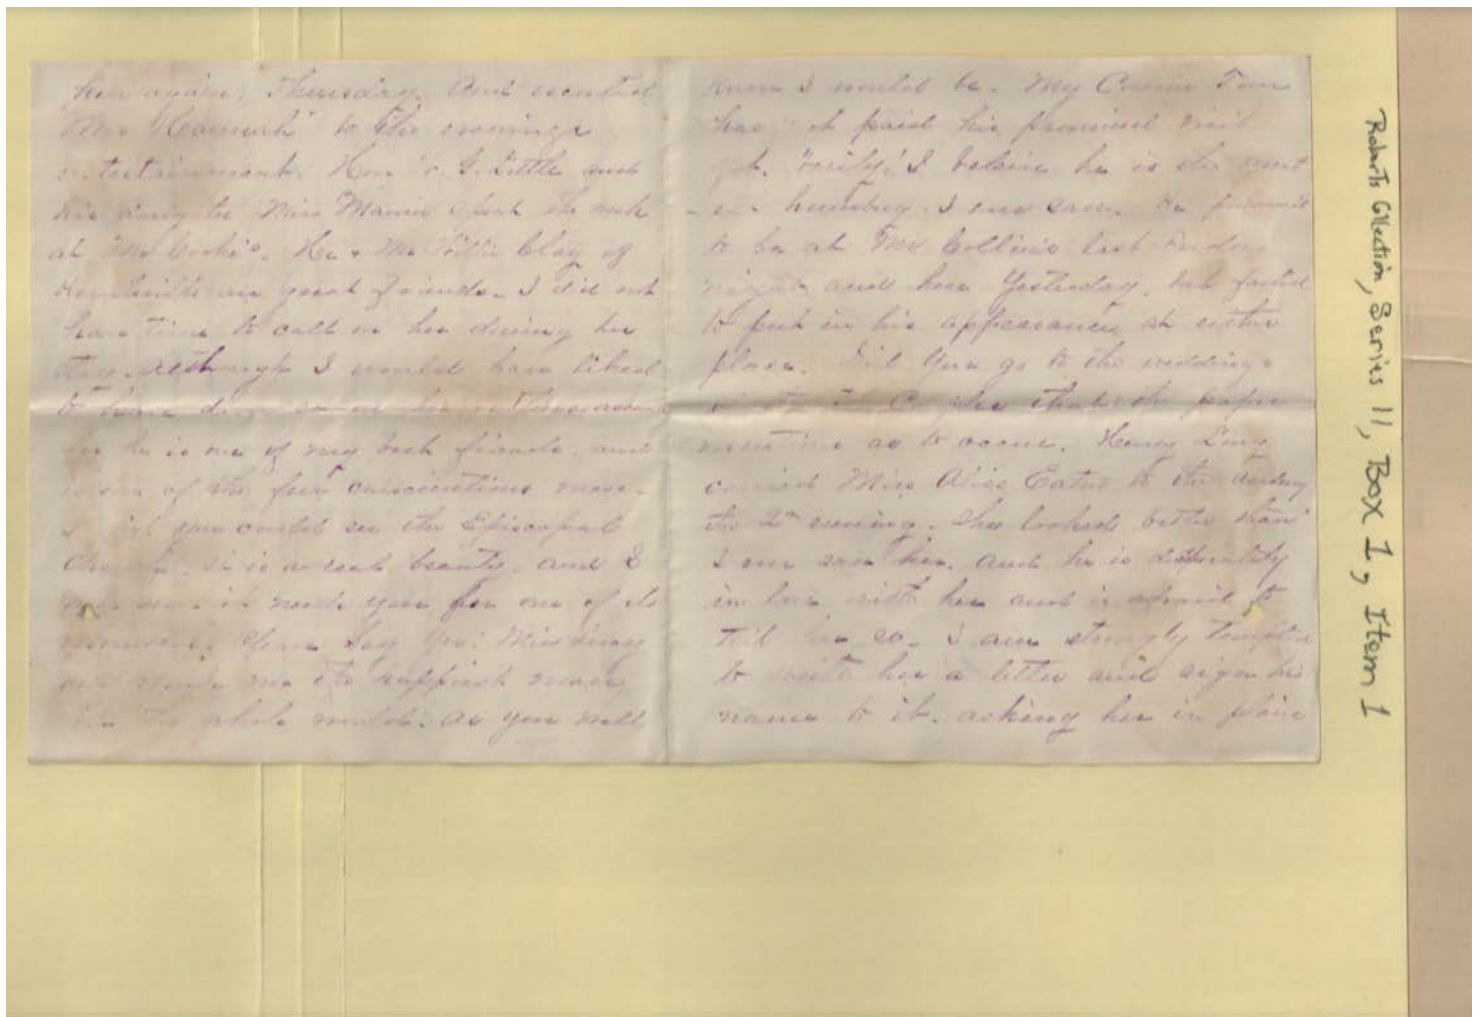 here again. Thursday. And escorted
to the evenings
entertainment. Little and
his daughter Miss Mamie spent the week
at Mr Cooke's. He & Mr Willie Clay of
Huntsville are great friends. I did not
have time to call on her during her
stay. although I would have liked
to have done so on
for he is one of my best friends. and
is one of the few conscientious men.
I wish you could see the Episcopal
Church. it is a real beauty. and I
you for one of its
Say Yes! Miss
and make me the happiest man
in the whole world. as you well
know I would be. My Cousin Tom
has not paid his promised visit
yet. "verily," I beleive he is the
humbug. I ever saw. He promised
to be at Mr Collins last
night and here Yesterday. but failed
to put in his appearance at either
place. Did You go to the wedding
the paper
mentions as to occur. Henry
carried Miss Alice to the
the 2nd evening. She looked better than
I ever saw her. and he is desperately
in love with her and is afraid to
tell her so. I am strongly tempted
to write her a letter and sign his
name to it. asking her in plain
Roberts Collection, Series II, Box 1, Item 1